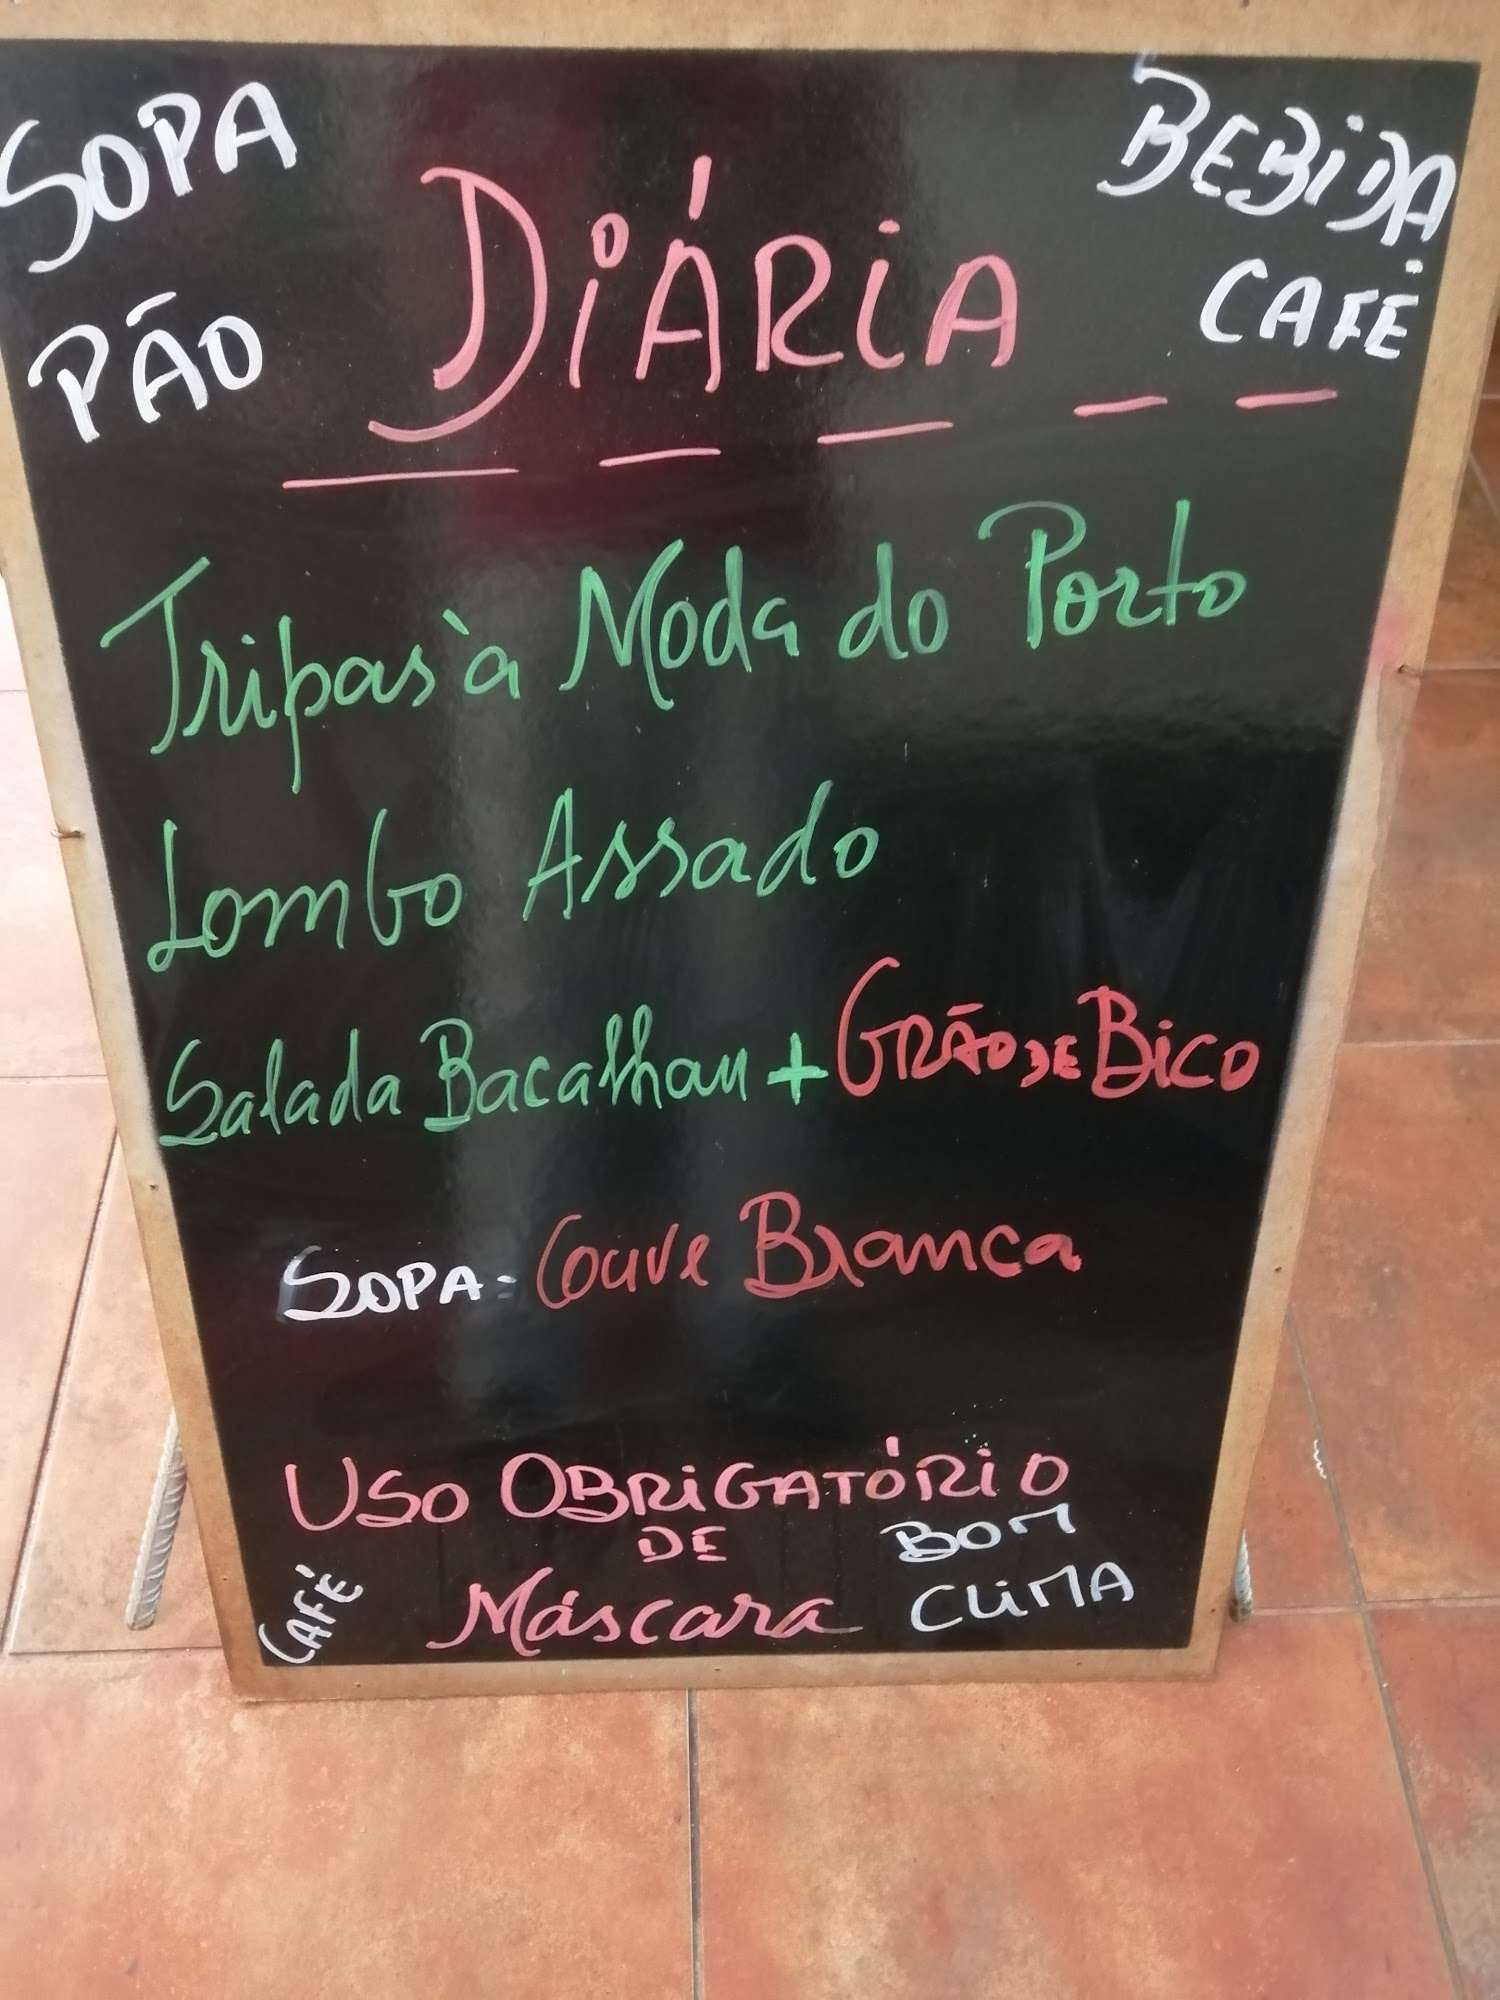 SOPA
PÃO
DiÁRiA
BEBiDA
CAFÉ
Tripas à Moda do Porto
Lombo Assado
Salada Bacalhau + GRÃO DE BICO
SOPA- Couve Branca
USO OBRIGATÓRIO
DE
MÁscara
BOM
CLIMA
CAFÉ